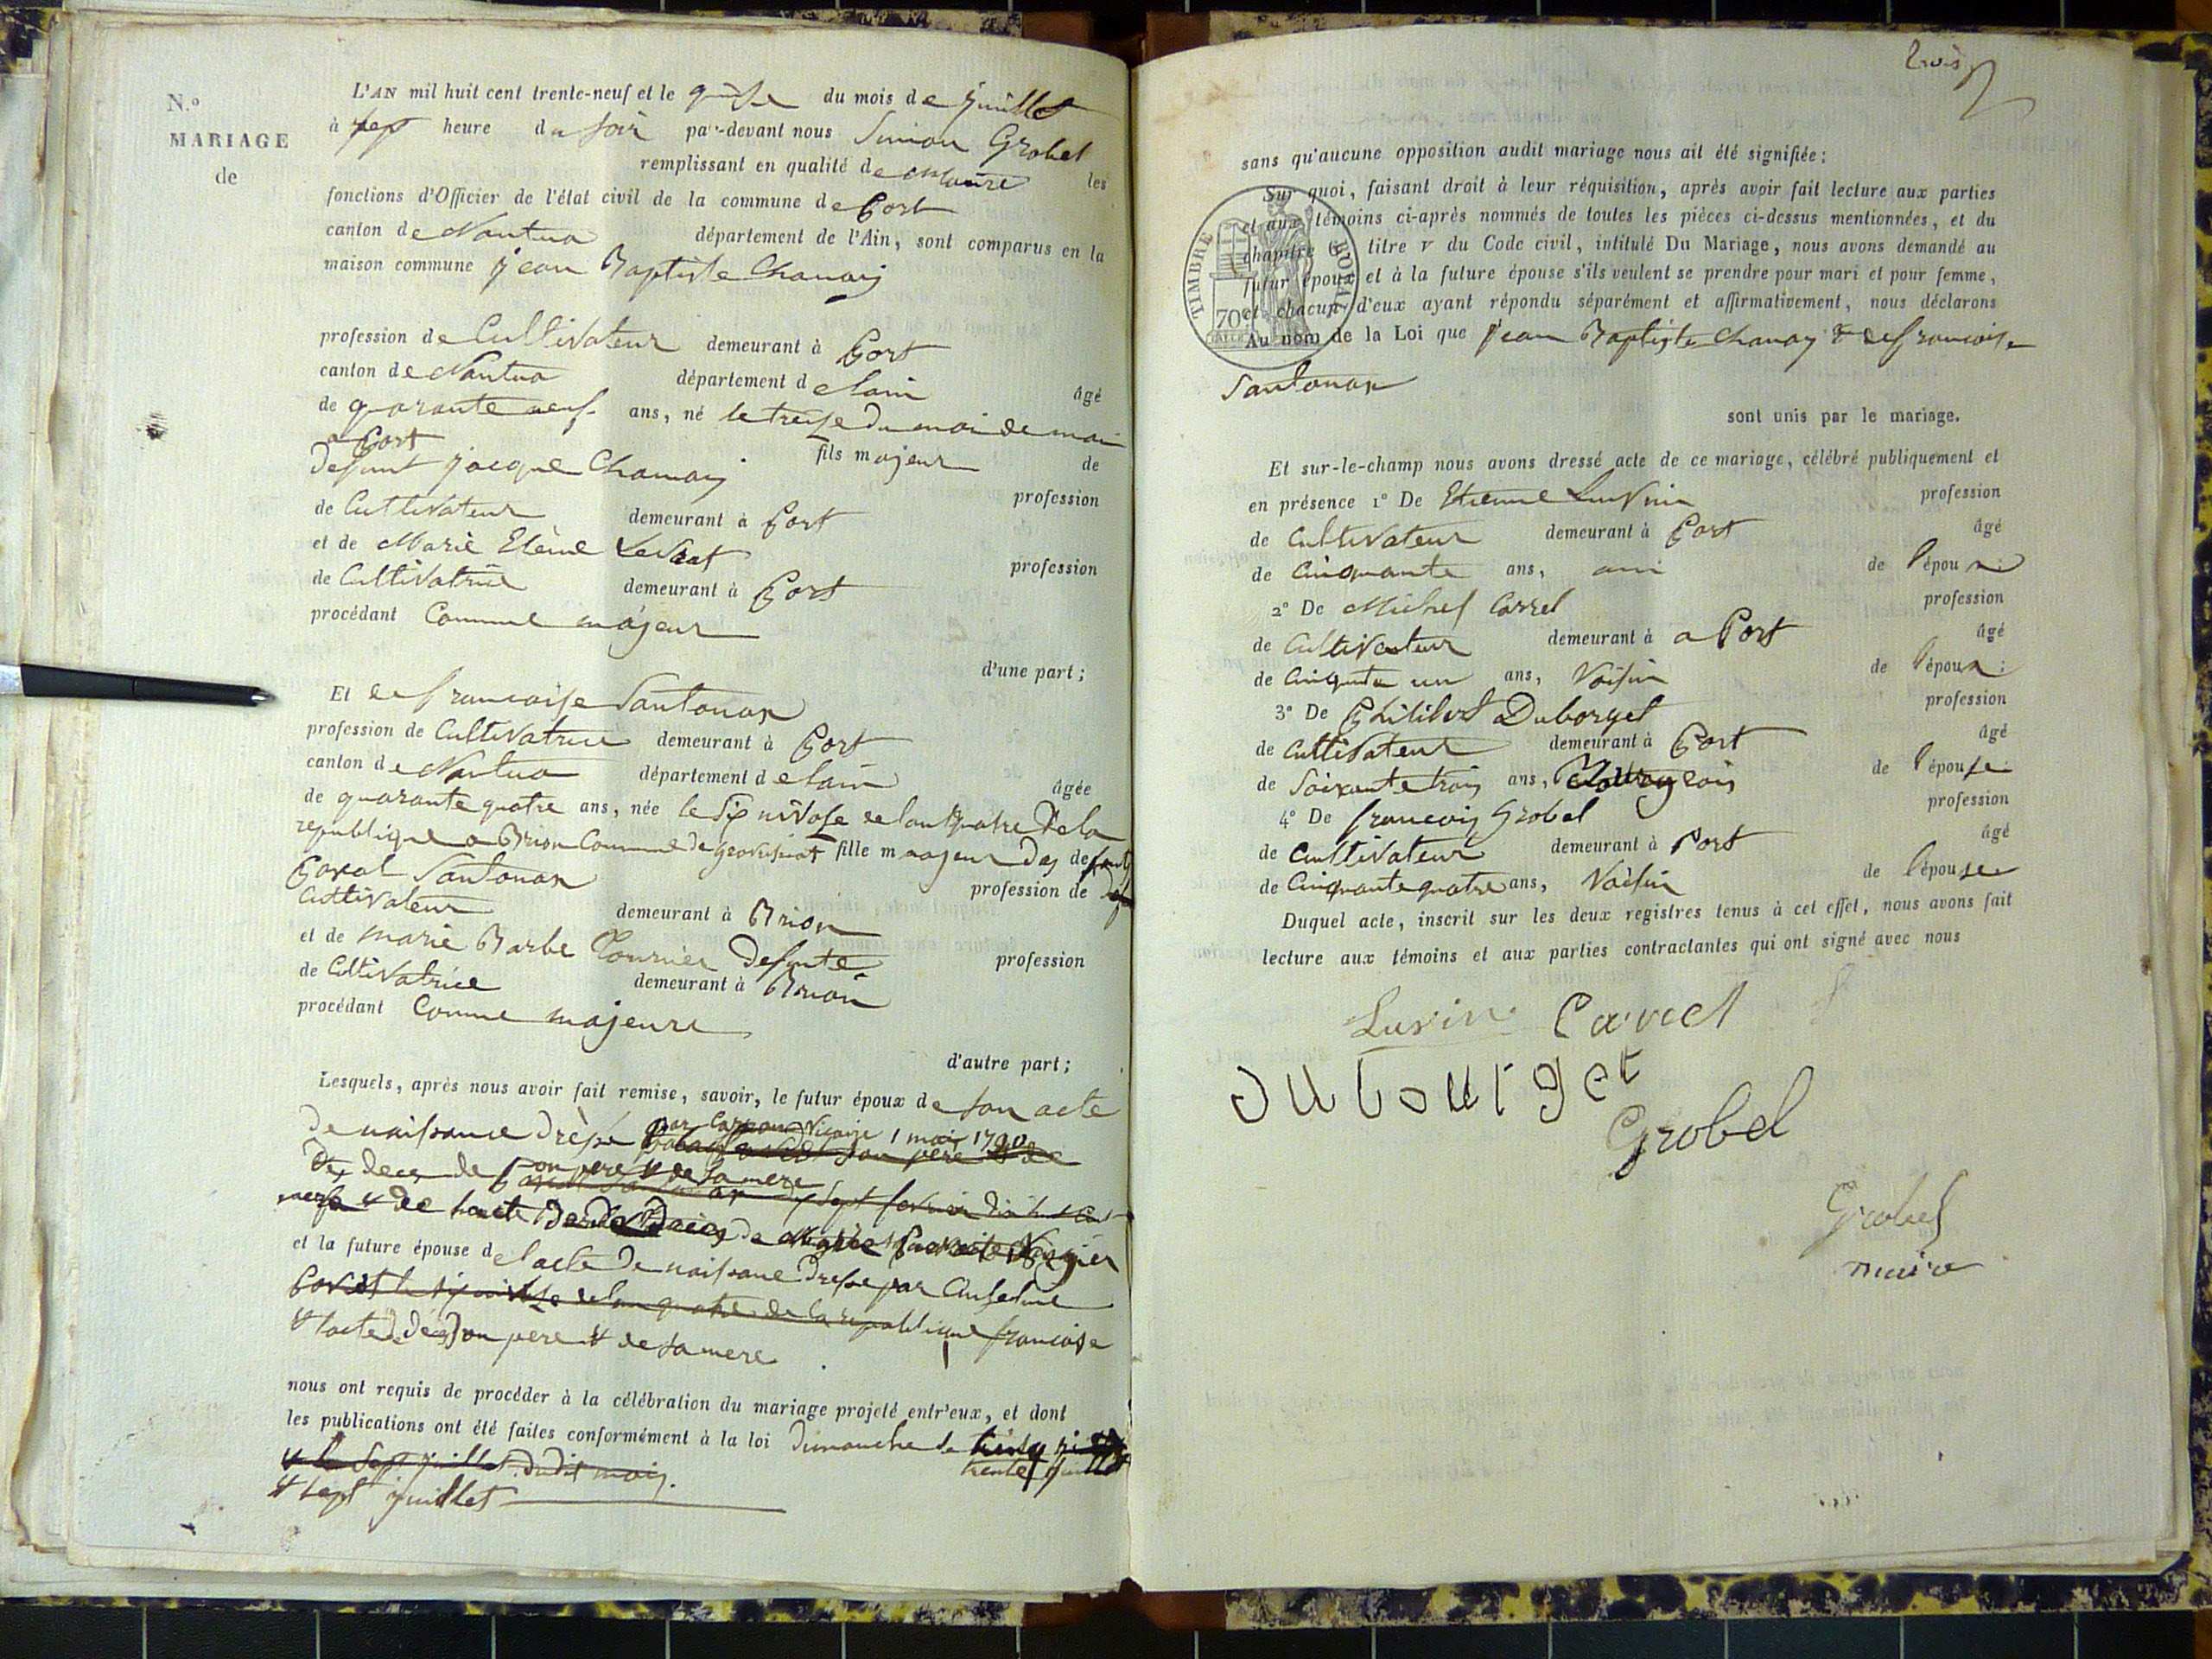 N.º
MARIAGE
de
L'AN mil huit cent trente-neuf et le quinze du mois de juillet
à sept heure du soir par-devant nous Simon Grobel
remplissant en qualité de maire les
fonctions d'Officier de l'état civil de la commune de Port
canton de Nantua département de l'Ain, sont comparus en la
maison commune jean Baptiste Chanay
profession de Cultivateur demeurant à Port
canton de Nantua département de lain âgé
de quarante neuf ans, né le treize du moi de mai
a Port fils majeur de
defunt jacque Chanay profession
de Cultivateur demeurant à Port
et de Marie Elène Levrat profession
de Cultivatrice demeurant à Port
procédant Comme majeur
d'une part;
Et de francoise Santonax
profession de Cultivatrice demeurant à Port
canton de Nantua département de lain âgée
de quarante quatre ans, née le six nivose de lan quatre de la
republique a Brion Commune de geovissiat fille majeur des defunts
Santonax profession de
Cultivateur demeurant à Brion
et de marie Barbe Tournier defunte profession
de Cultivatrice demeurant à Brion
procédant Comme majeure
d'autre part;
Lesquels, après nous avoir fait remise, savoir, le futur époux de son acte
de naissance drèsé par vicaire 1 mai 1790
deces de son pere & de sa mere
et la future épouse de lacte de naissance dressé par Anselme
le six nivose de lan quatre de la republique francoise
& lacte deces son pere & de sa mere
nous ont requis de procéder à la célébration du mariage projeté entr'eux, et dont
les publications ont été faites conformément à la loi dimanche le
trente juillet
& le sept juillet dudit mois.
& sept juillet
trois
sans qu'aucune opposition audit mariage nous ait été signifiée;
Sur quoi, faisant droit à leur réquisition, après avoir fait lecture aux parties
et aux témoins ci-après nommés de toutes les pièces ci-dessus mentionnées, et du
chapitre 6 titre v du Code civil, intitulé Du Mariage, nous avons demandé au
futur époux et à la future épouse s'ils veulent se prendre pour mari et pour femme,
et chacun d'eux ayant répondu séparément et affirmativement, nous déclarons
Au nom de la Loi que jean Baptiste chanay & de francoise
Santonax
TIMBRE ROYAL
70
sont unis par le mariage.
Et sur-le-champ nous avons dressé acte de ce mariage, célébré publiquement et
en présence 1º De Etienne Luvrin profession
de Cultivateur demeurant à Port âgé
de Cinquante ans, ami de l'époux
2º De Michel Carrel profession
de Cultivateur demeurant à a Port âgé
de Cinquante un ans, Voisin de l'époux:
3º De Philibert Duborget profession
de Cultivateur demeurant à Port âgé
de Soixante trois ans, de l'épouse:
4º De francois Grobel profession
de Cultivateur demeurant à Port âgé
de Cinquante quatre ans, Voisin de l'épouse
Duquel acte, inscrit sur les deux registres tenus à cet effet, nous avons fait
lecture aux témoins et aux parties contractantes qui ont signé avec nous
Luvrin Carrel
Dubourget
Grobel
Grobel
maire